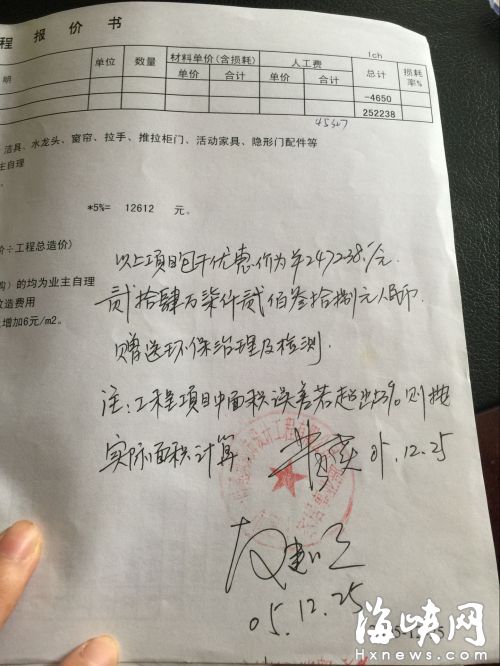 程 报 价 书
lch
明 单位 数量 材料单价(含损耗) 人工费 总计 损耗率%
单价 合计 单价 合计
-4650
252238
洁具、水龙头、窗帘、拉手、推拉柜门、活动家具、隐形门配件等
主自理
*5%= 12612 元。
价÷工程总造价)
购) 的均为业主自理
改造费用
增加6元/m2。
以上项目包干优惠价为¥247238./元.
贰拾肆万柒仟贰佰叁拾捌元人民币.
赠送环保治理及检测.
注:工程项目中面积误差若超出3%则按
实际面积计算.
05.12.25
05.12.25
海峡网
Hxnews.com